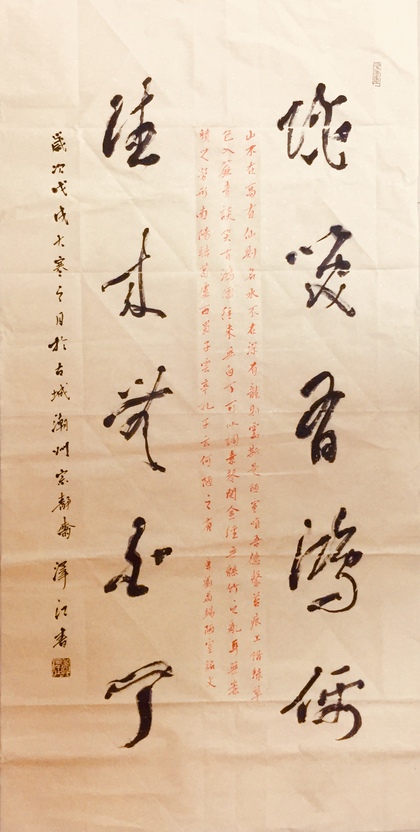 談咲有鴻儒
山不在高有仙則名水不在深有龍則靈斯是陋室惟吾德馨苔痕上階綠草
色入簾青談笑有鴻儒往来無白丁可以調素琴閱金經無絲竹之亂耳無案
牘之勞形南陽諸葛廬西蜀子雲亭孔子云何陋之有 劉禹錫陋室銘文
往来無白丁
歲次戊戌大寒之日於古城潮州 靜齋 澤江書